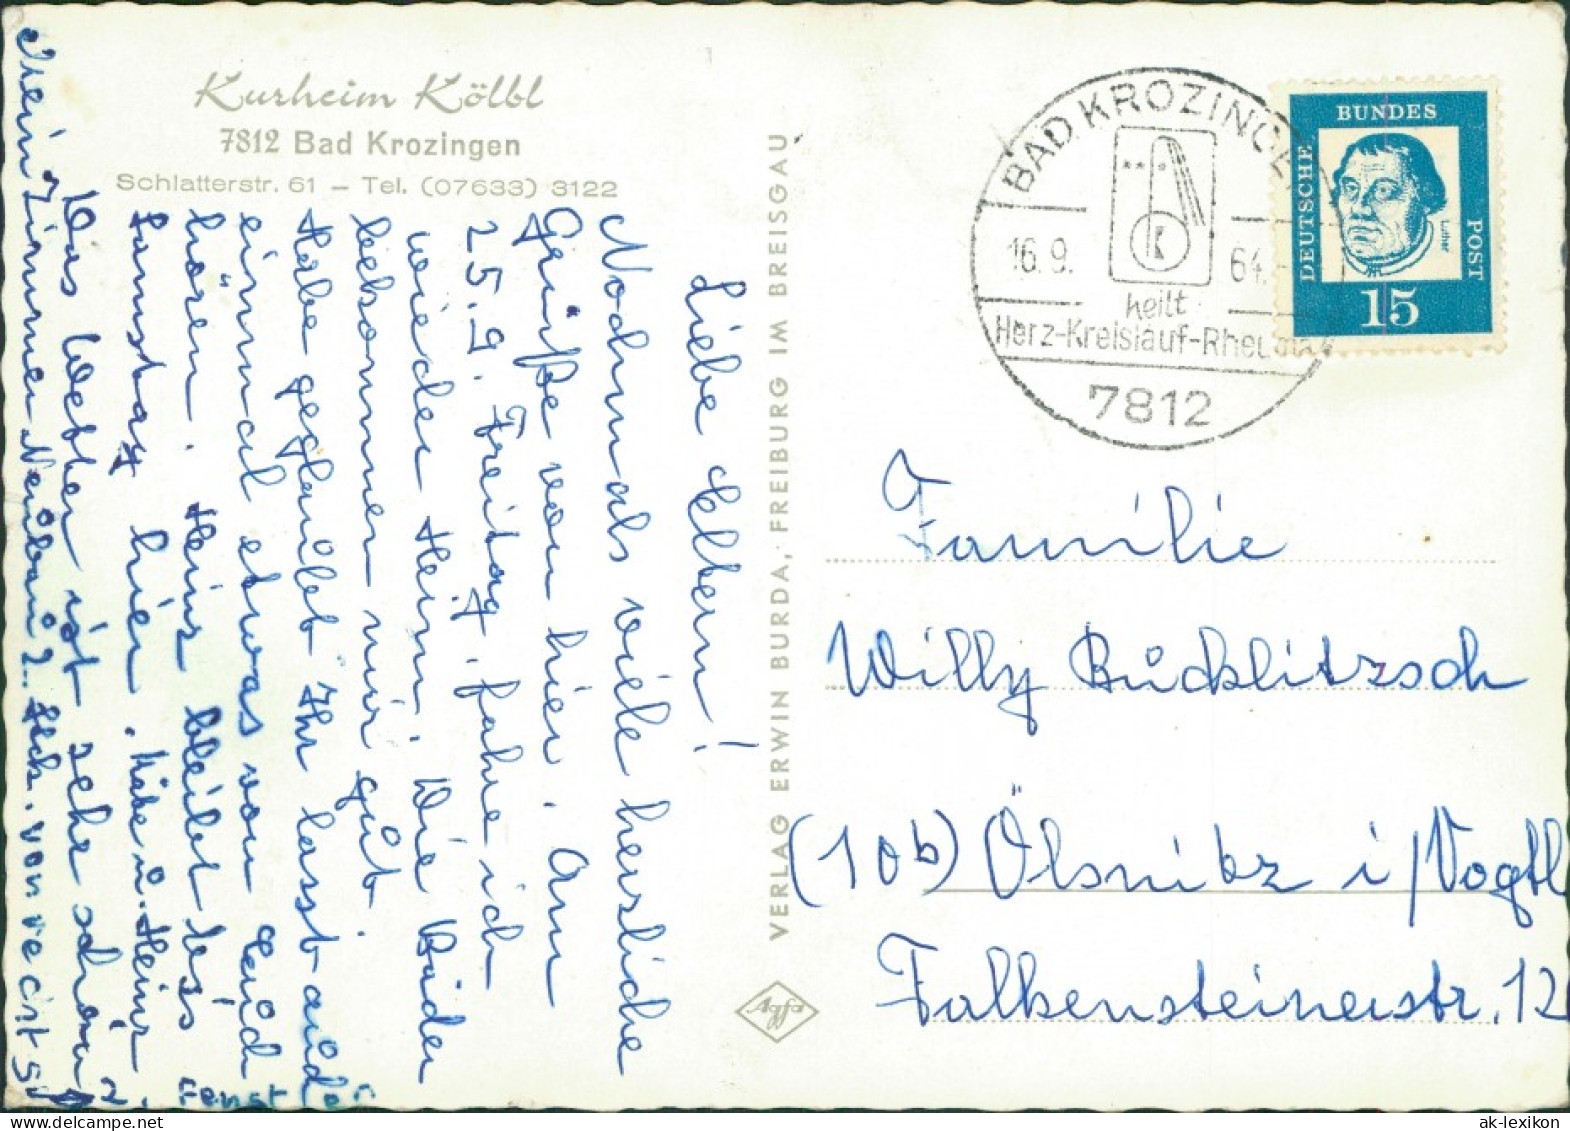 Kurheim Kölbl
7812 Bad Krozingen
Schlatterstr. 61 – Tel. (07633) 3122
Liebe Eltern!
Nochmals viele herzliche
Grüße von hier. Am
25.9. Freitag, fahre ich
wieder Heim. Die Bäder
bekommen mir gut.
Habe geglaubt Ihr lasst auch
einmal etwas von Euch
hören. Heinz bleibt bis
Samstag hier.
Das Wetter ist sehr schön
Mein Zimmer Neubau 2. Stck. von rechts
VERLAG ERWIN BURDA, FREIBURG IM BREISGAU
Agfa
BAD KROZINGEN
16.9. 64
K
heilt
Herz-Kreislauf-Rheuma
7812
DEUTSCHE
BUNDES
POST
Luther
15
Familie
Willy Bücklitzsch
(10b) Ölsnitz i/Vogtl
Falkensteinerstr. 12
ak-lexikon